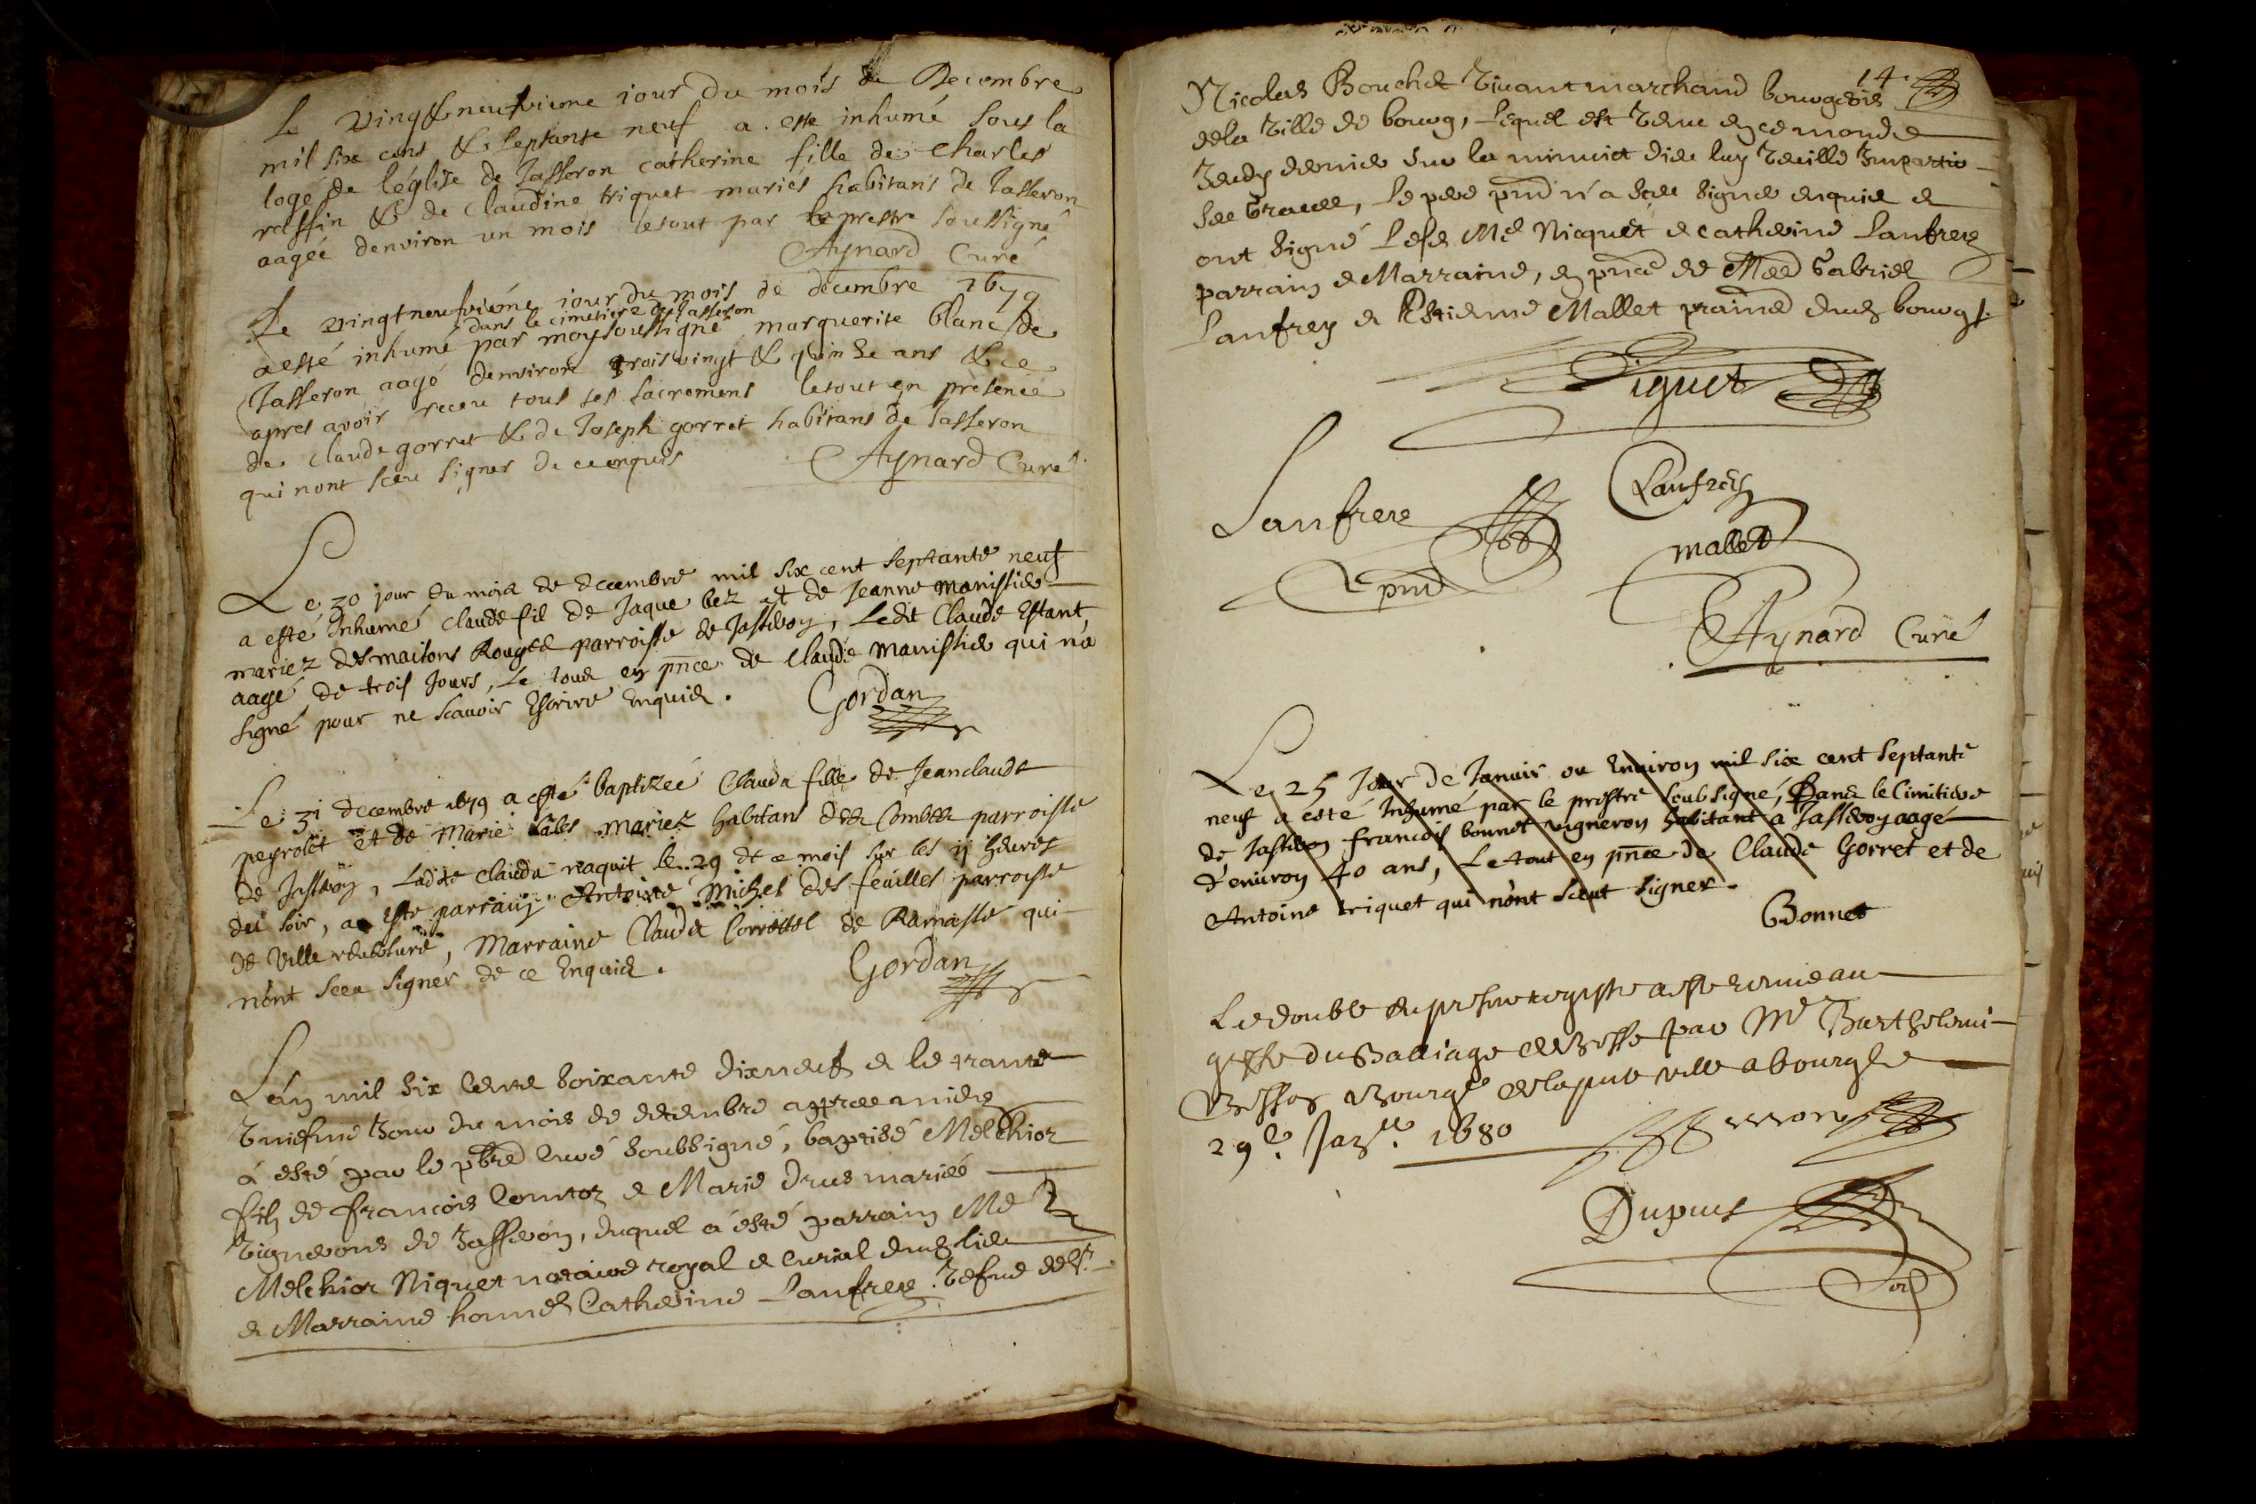 Le vingt & neufvieme iour du mois de Decembre
mil six cens & septante neuf a este inhumé sous la
loge de léglise de Jasseron catherine fille de charles
raffin & de claudine triquet mariés habitans de Jasseron
aagée denviron un mois letout par le prestre soussigné
Aynard Curé
Le vingtneufvième iour du mois de decembre 1679
dans le cimetiere de Jasseron
a esté inhumé par moy soussigné marguerite blanc de
Jasseron aagé denviron trois vingt & quinze ans & ce
apres avoir receu tous ses sacremens letout en présence
de claude gorret & de Joseph gorret habitans de Jasseron
qui nont sceu signer de ce enquis Aynard Curé
Le 30 jour du mois de decembre mil six cent septante neuf
a esté Inhumé claude fil de Jaque bez et de Jeanne manissier
mariez des maisons Rouges parroisse de Jasseron, Ledit Claude Estant
aagé de trois Jours, Le tout en pnce de claude manissier qui n'a
signé pour ne scavoir Escrire Enquis. Gordan
Le 31 decembre 1679 a esté baptizéé Clauda fille de Jeanclaude
peyrolet et de Marie mariez habitans des Combes parroisse
de Jasseron, Ladite clauda naquit le 29 de ce mois sur les 11 heures
du soir, a esté parrain Antoine Michel des feuilles parroisse
de Ville reversure, Marraine Clauda de Ramasse qui
n'ont sceu signer de ce Enquis. Gordan
L'an mil six cents soixante dixneuf & le trante
Uniesme Jour du mois de decembre apres midy
à esté par le pbre Curé soubsigné, baptisé Melchior
filz de françois Comtoz & Marie Drus mariés
Vignerons de Jasseron, duquel à esté parrain Me
Melchior Niquet notaire royal & Curial dudz lieu
& Marraine honne Catherine Lanfrere Vefve de sr
14.
Nicolas Bouchet Vivant marchand bourgeois
de la Ville de bourg, Lequel est Venu en ce monde
Jeudy dernier sur la minuict dieu luy Veuille Impartir
ses Graces, Le pere pnt n'a sceu signer enquis &
ont signé Lesd Me Nicquet & catherine Lanfrere
parrain & Marraine, en pnce de Mes Gabriel
Lanfrey & Estienne Mallet dudz bourg
Niquet
Lanfrere Lanfrey
mallet
Aynard Curé
Le 25 Jour de Januir ou Enuiron mil six cent septante
neuf a esté Inhumé par le prestre soubsigné, Dans le Cimitiere
de Jasseron francois bonnet vigneron habitant a Jasseron aagé
d'enuiron 40 ans, Le tout en pnce de Claude Gorret et de
Antoine triquet qui n'ont sceut signer.
Bonnet
Le double du present registre a esté remis au
greffe du Balliage de Bresse par Mr Barthelemi
Bourgs de la pnte ville a bourg le
29e Janer. 1680
Dupuis